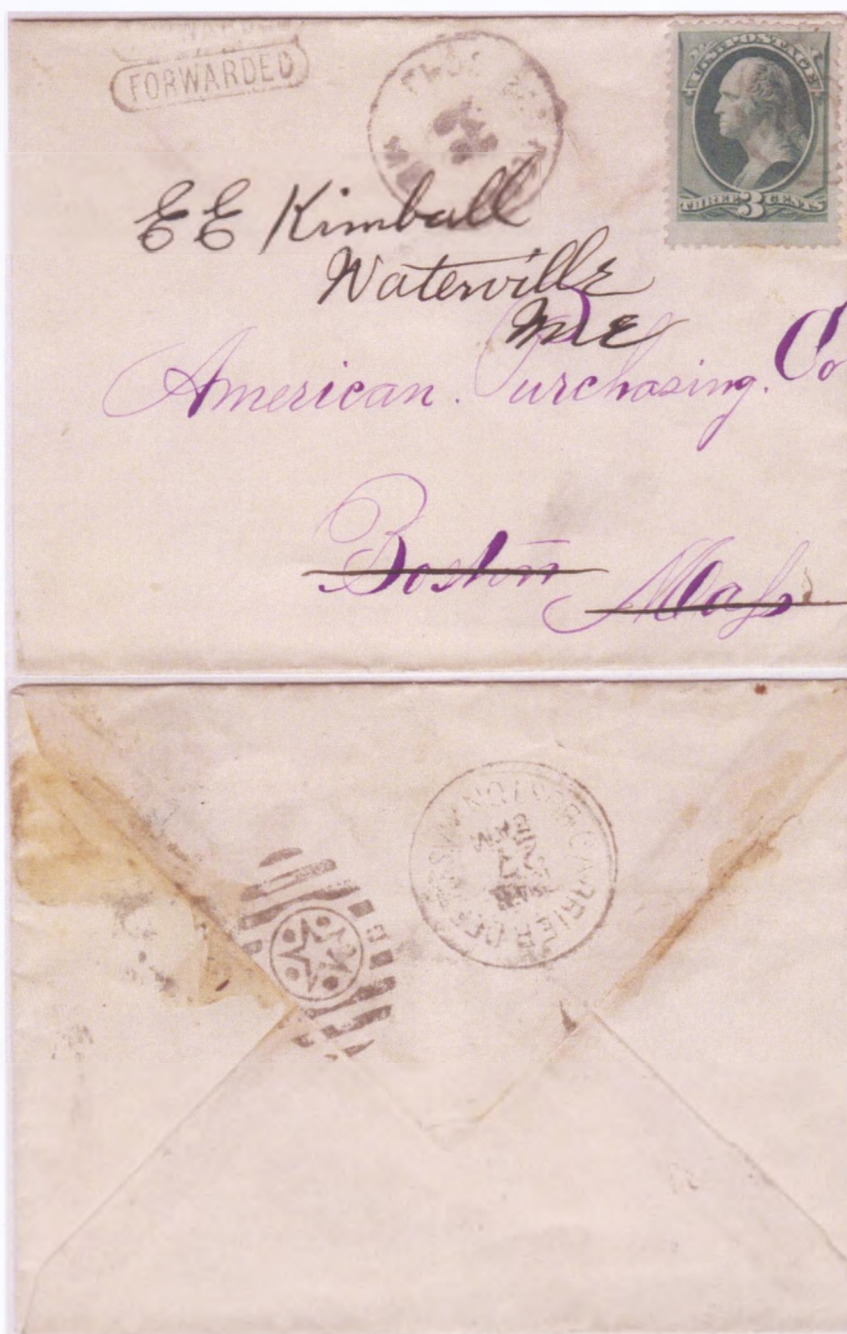 FORWARDED
U.S. POSTAGE
THREE 3 CENTS
E E Kimball
Waterville
Me
American. Purchasing. Co
Boston Mass
BOSTON MASS. CARRIER DEP
MAR
27